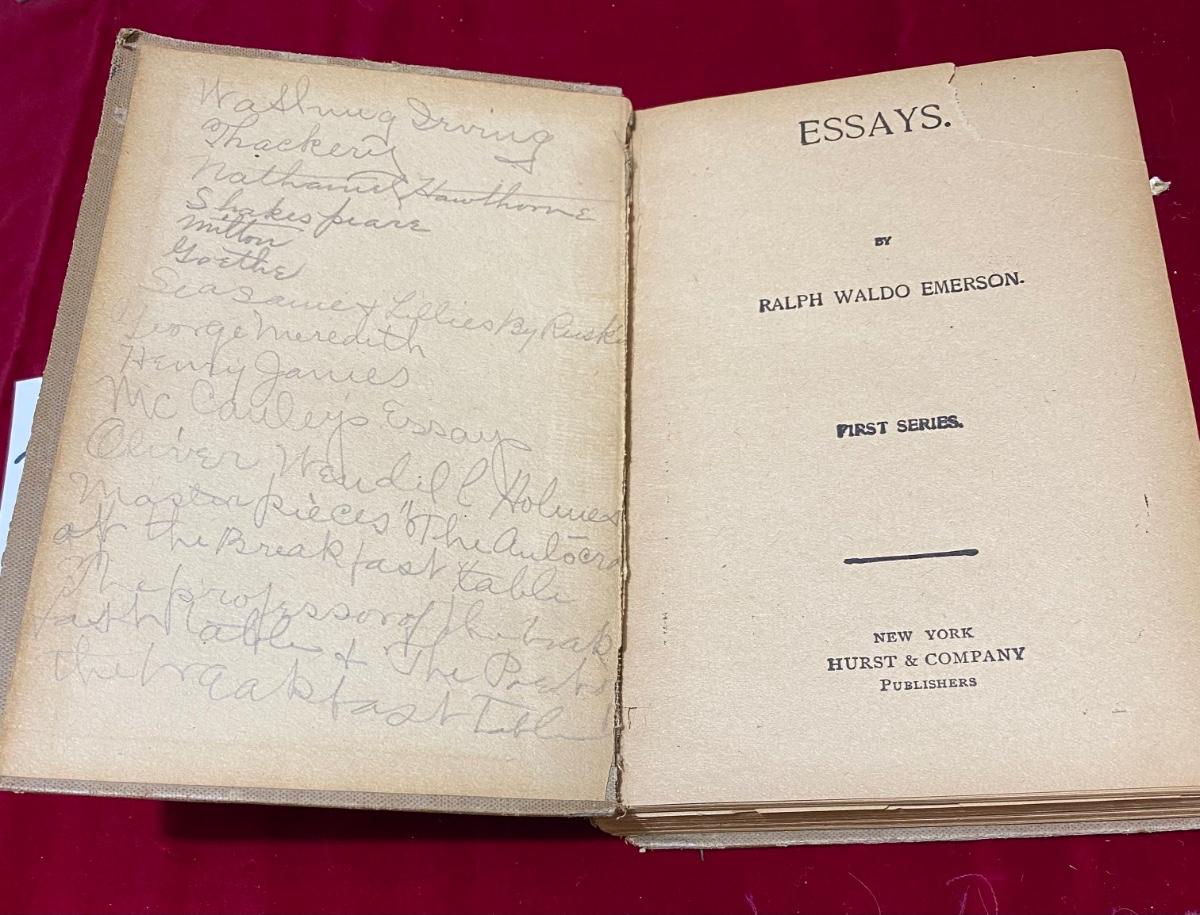 Washnug Irving
Thackery
Nathaniel Hawthorne
Shakespeare
Milton
Goethe
Seasame & Lillies By Ruski
George Meredith
Henry James
Mc Cauley's Essays
Oliver Wendell Holmes
Masterpieces "The Autocra
of the Breakfast table
The professor of the break
fast table & The Poet
the braakfast Table
ESSAYS.
BY
RALPH WALDO EMERSON.
FIRST SERIES.
NEW YORK
HURST & COMPANY
PUBLISHERS